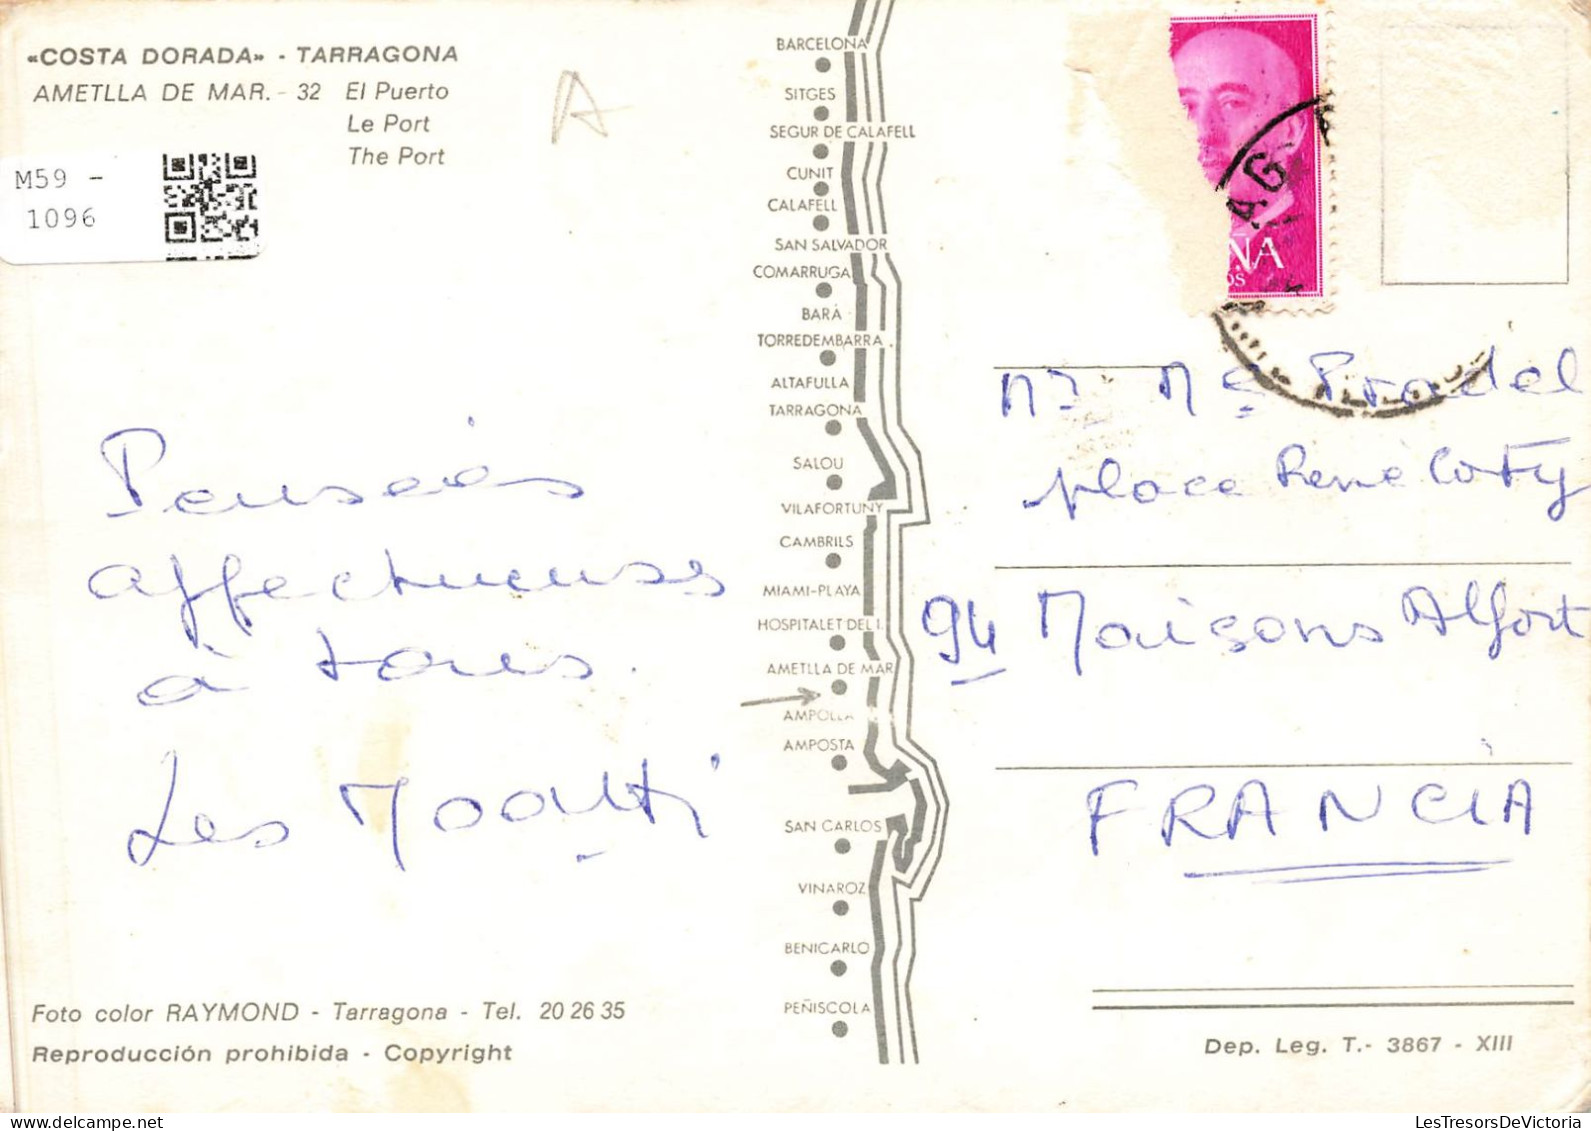 «COSTA DORADA» - TARRAGONA
AMETLLA DE MAR. - 32 El Puerto
Le Port
The Port
A
M59 -
1096
BARCELONA
SITGES
SEGUR DE CALAFELL
CUNIT
CALAFELL
SAN SALVADOR
COMARRUGA
BARÁ
TORREDEMBARRA
ALTAFULLA
TARRAGONA
SALOU
VILAFORTUNY
CAMBRILS
MIAMI-PLAYA
HOSPITALET DEL I.
AMETLLA DE MAR
AMPOLLA
AMPOSTA
SAN CARLOS
VINAROZ
BENICARLO
PEÑISCOLA
Pensées
affectueuses
à tous.
Les
ÑA
AG
Mr Me Pradel
place René Coty
94 Maisons Alfort
FRANCIA
Foto color RAYMOND - Tarragona - Tel. 20 26 35
Reproducción prohibida - Copyright
Dep. Leg. T.- 3867 - XIII
LesTresorsDeVictoria